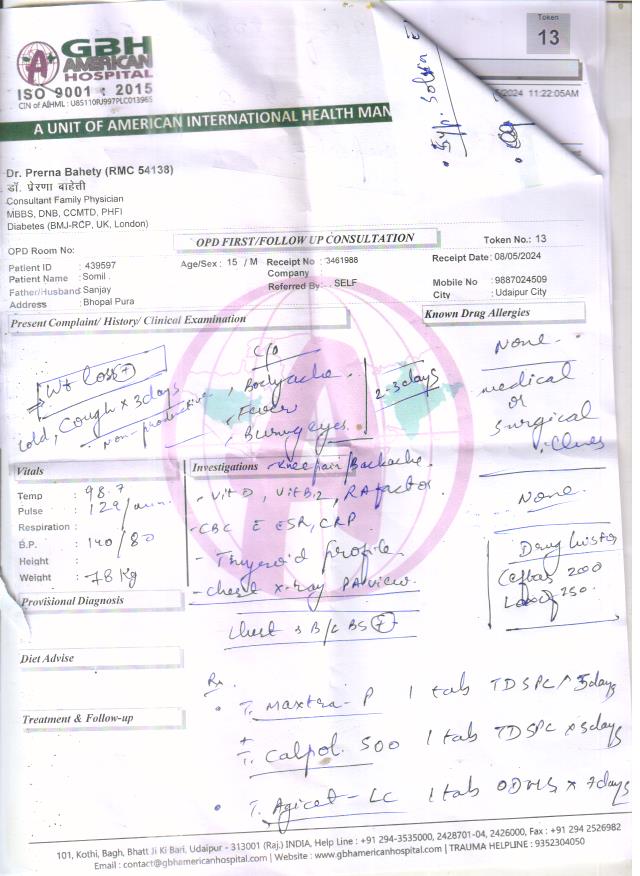 Token
13
GBH
AMERICAN
HOSPITAL
ISO 9001 : 2015
CIN of AIHML : U85110RJ997PLC013965
/2024 11:22:05AM
A UNIT OF AMERICAN INTERNATIONAL HEALTH MAN
Syp. Solvin E
Dr. Prerna Bahety (RMC 54138)
डॉ. प्रेरणा बाहेती
Consultant Family Physician
MBBS, DNB, CCMTD, PHFI
Diabetes (BMJ-RCP, UK, London)
OPD FIRST/FOLLOW UP CONSULTATION
OPD Room No:
Token No.: 13
Patient ID : 439597
Age/Sex : 15 / M
Receipt No : 3461988
Receipt Date: 08/05/2024
Patient Name : Somil .
Company
Mobile No : 9887024509
Father/Husband : Sanjay
Referred By: . SELF
City : Udaipur City
Address : Bhopal Pura
Present Complaint/ History/ Clinical Examination
Known Drug Allergies
C/o
None.
Wt loss +
Bodyache
Cold, Cough x 3 days
Fever
2-3 days
medical
- Non-productive
Burning eyes.
or
Surgical
Vitals
Investigations
Knee pain/Backache.
None.
Temp : 98.7
- Vit D, Vit B12, RA factor.
Pulse : 129/min
- CBC E ESR, CRP
Respiration :
B.P. : 140/80
- Thyroid profile
Drug history
Height :
200
Weight : 78 Kg
- Chest x-ray PA view.
250.
Provisional Diagnosis
Chest B/L BS +
Diet Advise
Rx.
T. Maxtra-P 1 tab TDSPC x 5days
Treatment & Follow-up
+
T. Calpol 500 1 tab TDSPC x 5days
T. Agicet-LC 1 tab ODHS x 7days
101, Kothi, Bagh, Bhatt Ji Ki Bari, Udaipur - 313001 (Raj.) INDIA, Help Line : +91 294-3535000, 2428701-04, 2426000, Fax : +91 294 2526982
Email : contact@gbhamericanhospital.com | Website : www.gbhamericanhospital.com | TRAUMA HELPLINE : 9352304050